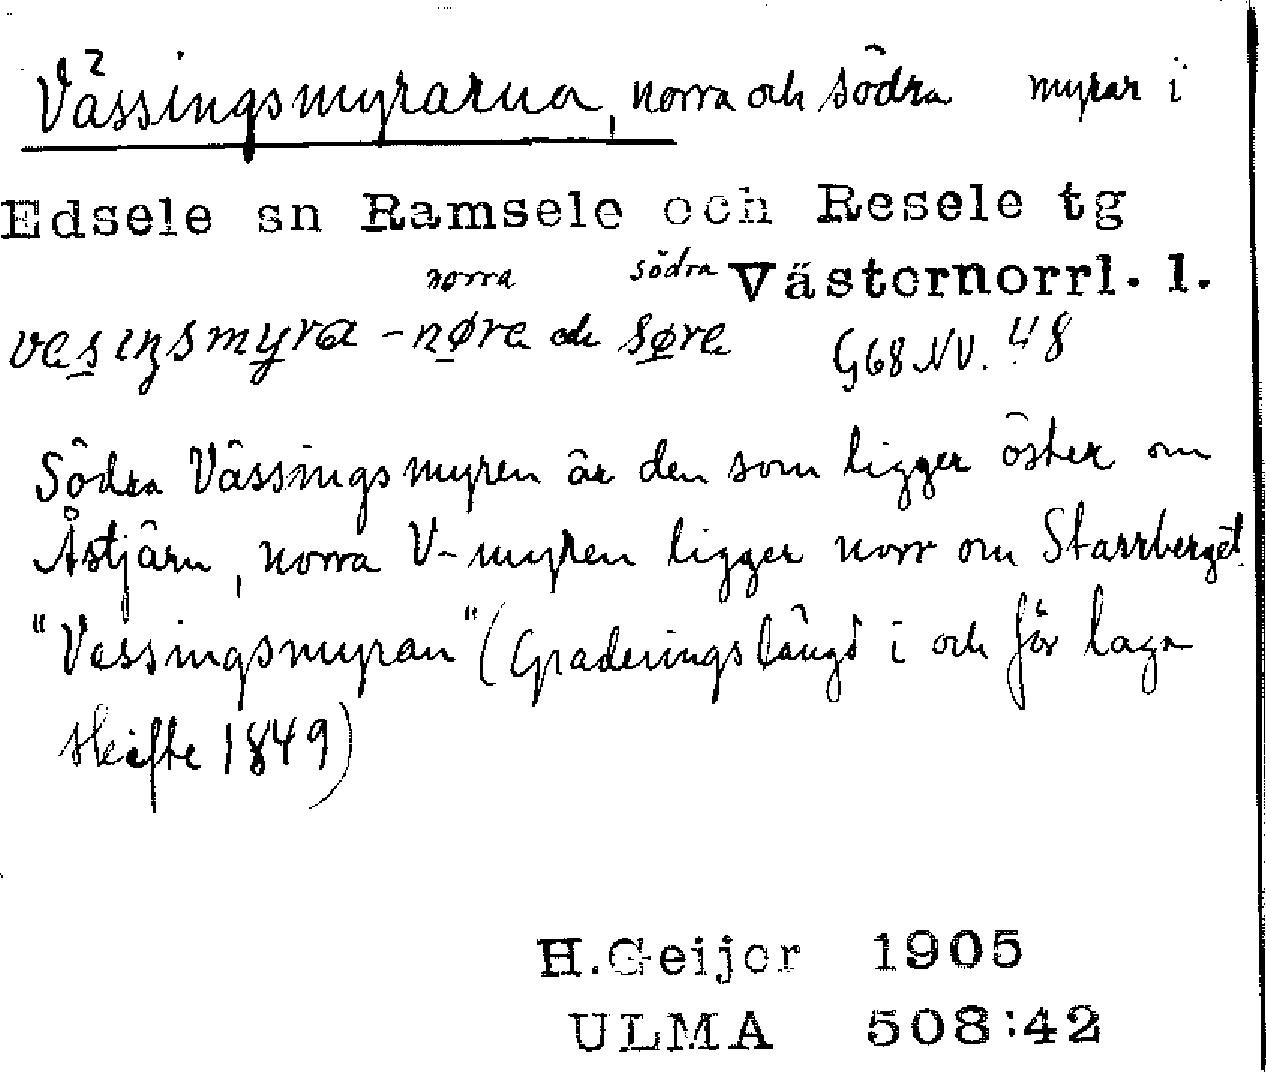 Vässingsmyrarna, norra och södra myrar i
Edsele sn Ramsele och Resele tg
norra södra Västernorrl. l.
vesiŋsmyra - nøre och søre G68 NV. 48
Södra Vässingsmyren är den som ligger öster om
Åstjärn, norra V-myren ligger norr om Starrberget.
"Vessingsmyran" (Graderingslängd i och för laga
skifte 1849)
H.Geijer 1905
ULMA 508:42